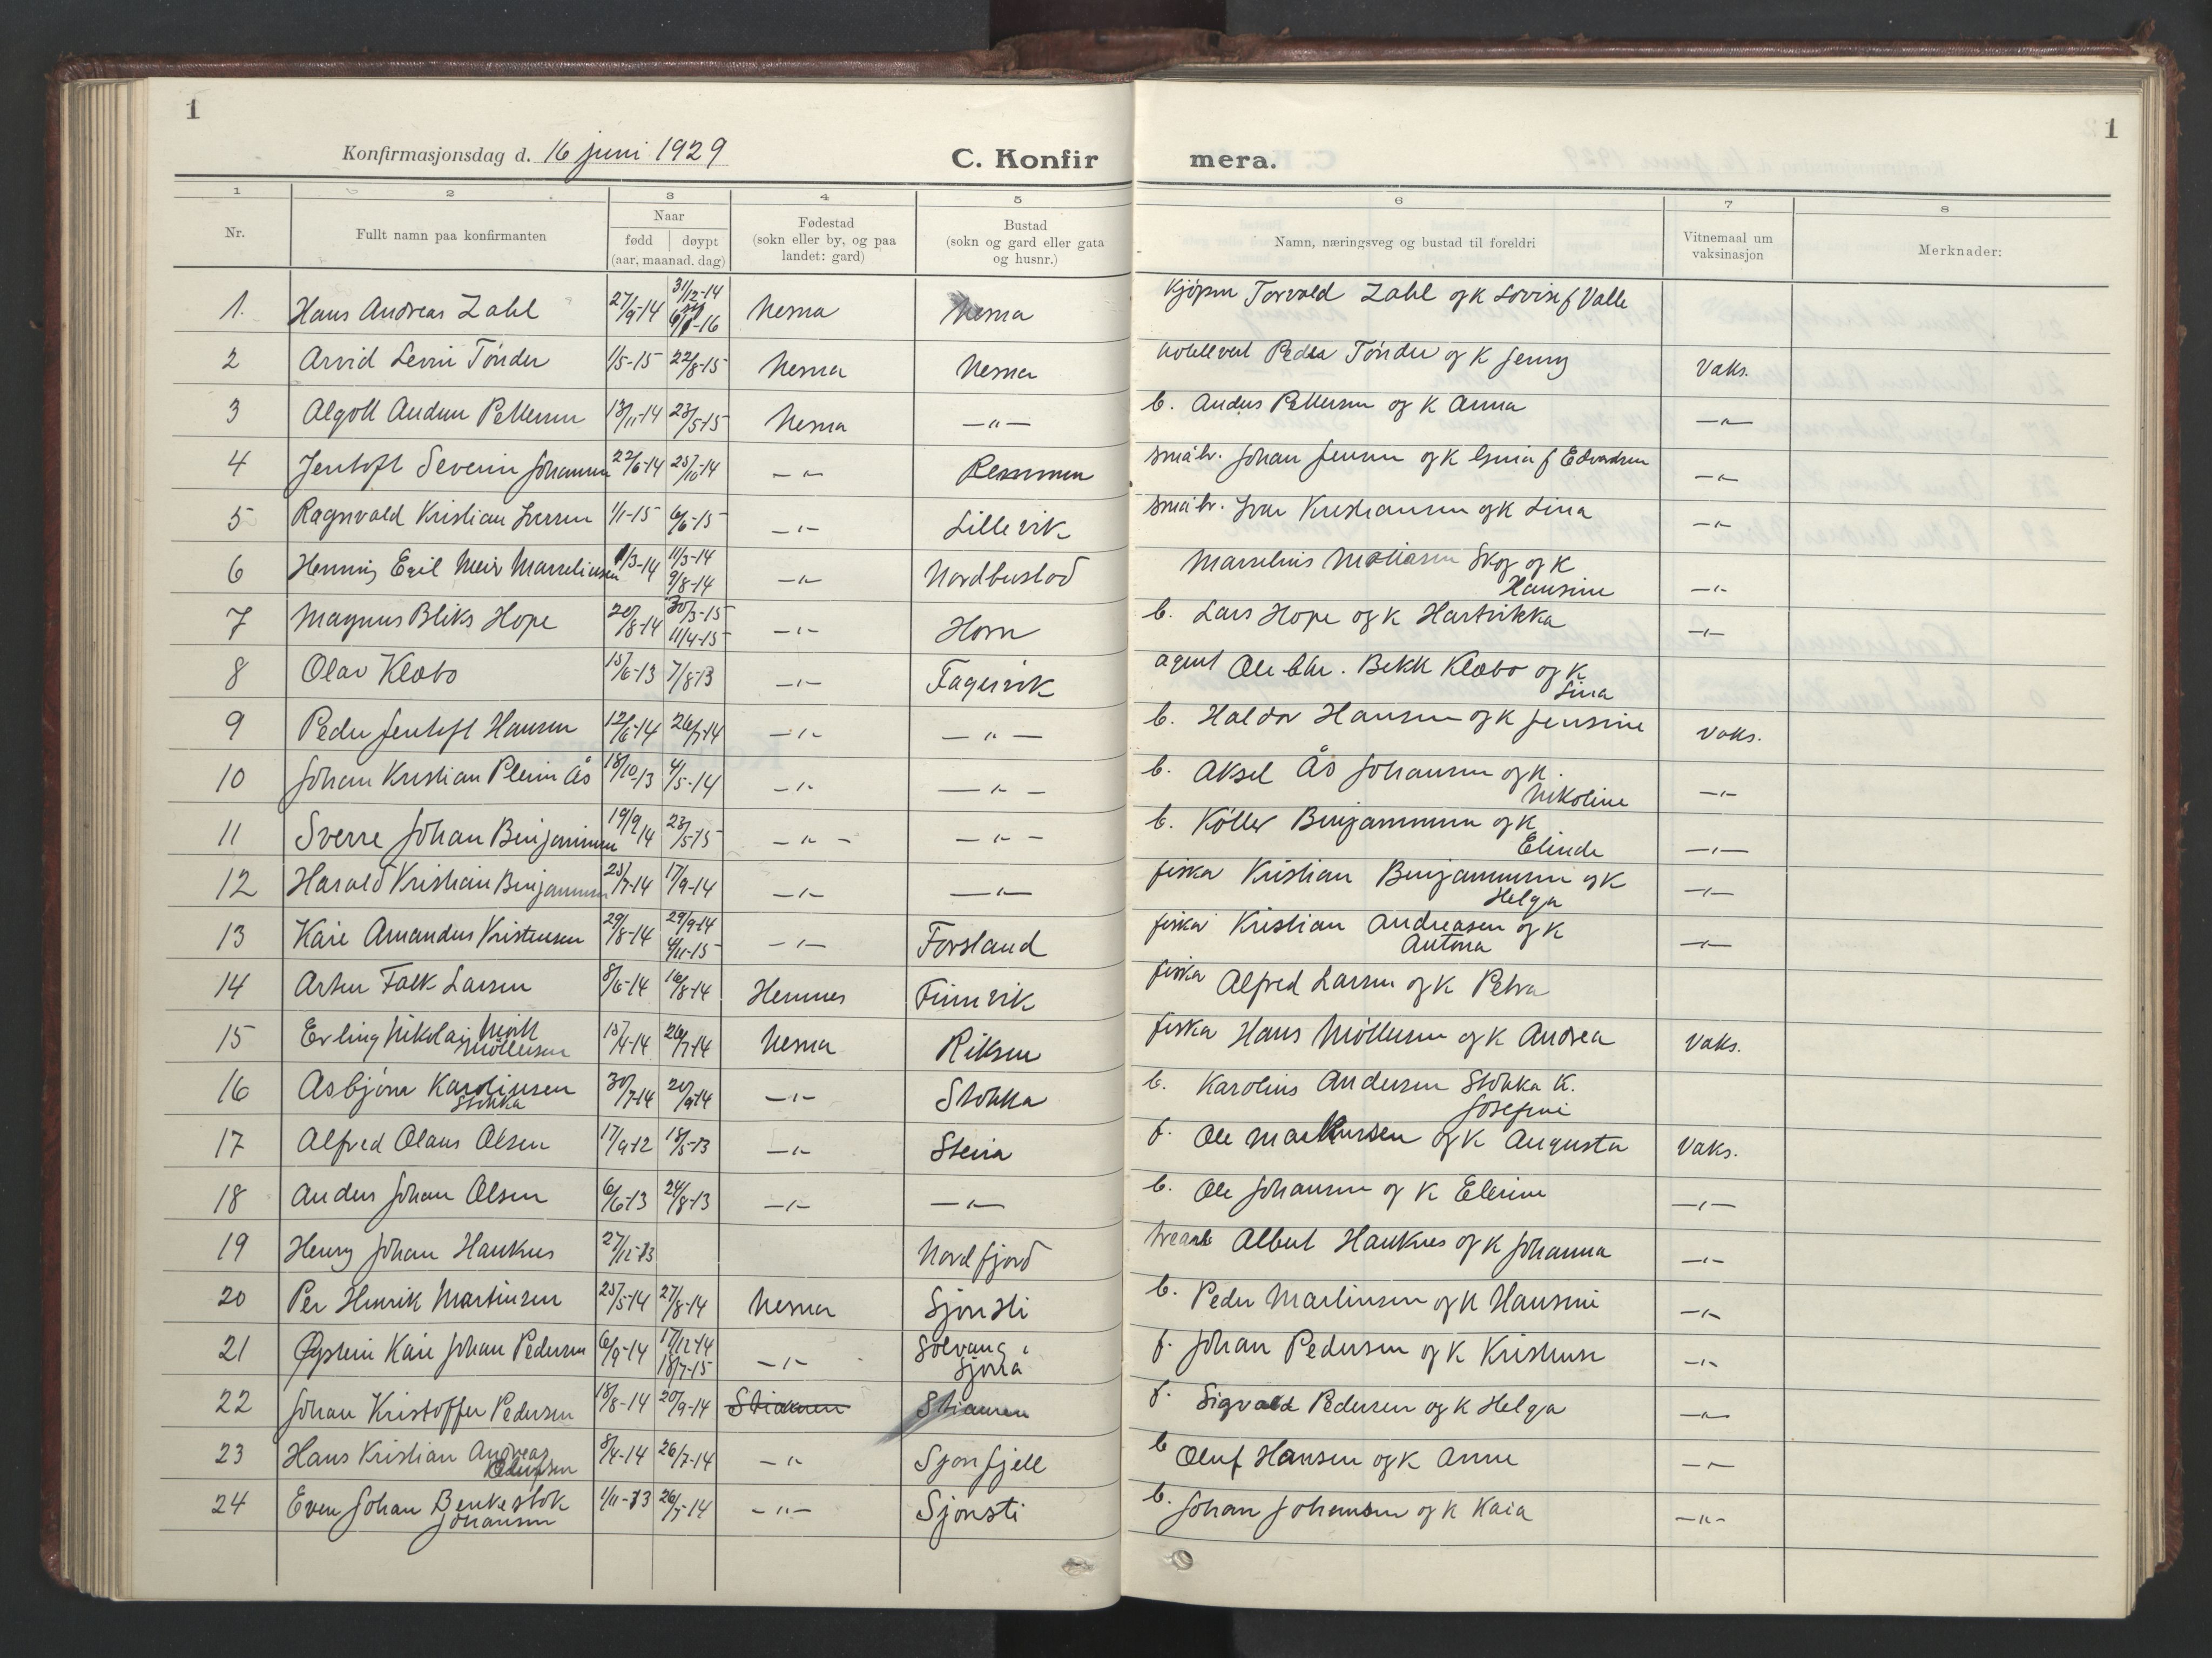 1
1
Konfirmasjonsdag d. 16 juni 1929
C. Konfir mera.
1 2 3 4 5 6 7 8
Nr.
Fullt namn paa konfirmanten
Naar
fødd døypt
(aar, maanad, dag)
Fødestad
(sokn eller by, og paa
landet: gard)
Bustad
(sokn og gard eller gata
og husnr.)
Namn, næringsveg og bustad til foreldri
Vitnemaal um
vaksinasjon
Merknader:
1. Hans Andreas Zahl 27/9-14 31/12-14 Nesna Nesna Kjøpm Torvald Zahl og K Lovise f Valle
2 Arvid Levin Tönder 1/5-15 22/8-15 Nesna Nesna Peder Tönder og K Jenny Vaks.
3 Algott Pettersen 13/11-14 23/5-15 Nesna —"— b. Anders Pettersen og K Anna —"—
4 Jentoft Severin Johansen 22/6-14 25/10-14 —"— småbr. Johan Jensen og K f Edvardsen —"—
5 Ragnvald Kristian Iversen 1/1-15 6/6-15 —"— Lillevik småbr. Ivar Kristiansen og K Lina —"—
6 Henning Egil Meir Marseliussen 1/3-14 11/3-14
9/8-14 —"— Nordbustad Marselius Skog og K
Hansine —"—
7 Magnus Bliks Hope 20/8-14 30/3-15
11/4-15 —"— Horn b. Lars Hope og K Hartvikka —"—
8 Olav Klæbo 15/6-13 7/8-13 —"— Fagervik agent Ole Chr. Bekk Klæbo og K
Lina
9 Peder Jentoft Hansen 12/6-14 26/7-14 —"— —"— b. Haldor Hansen og K Jensine Vaks.
10 Johan Kristian Ås 18/10-13 4/5-14 —"— —"— b. Aksel Ås Johansen og K.
Nikoline —"—
11 Sverre Johan Benjaminsen 19/9 14 23/5-15 —"— —"— b. Köller Benjaminsen og K
Elinde —"—
12 Harald Kristian Benjaminsen 25/7-14 17/9-14 —"— —"— fisker Kristian Benjaminsen og K
Helga —"—
13 Kåre Amandus Kristensen 29/8-14 29/9-14
4/11-15 —"— Forsland fisker Kristian Andreasen og K
Antona —"—
14 Falk Larsen 8/6-14 16/8-14 Hemnes Finnvik fisker Alfred Larsen og K Petra
15 Erling Nikolai
Möllersen 15/4-14 26/7-14 Nesna Riksen fisker Hans Möllersen og K Andrea Vaks.
16 Asbjörn Karoliusen
Stokka 30/7-14 20/9-14 —"— Stokka b. Karolius Andersen Stokka K.
Josefine
17 Alfred Olaus Olsen 17/9-12 18/5-13 —"— Steira f. Ole Markussen og K Augusta Vaks.
18 Anders Johan Olsen 6/6-13 24/8-13 —"— —"— b. Ole Johansen og K Elerine —"—
19 Henry Johan Hauknes 27/12-13 Nordfjord Albert Hauknes og K Johanna —"—
20 Per Henrik Martinsen 25/5-14 27/8-14 Nesna Sjonsti b. Peder Martinsen og K Hansine —"—
21 Øystein Kåre Johan Pedersen 6/9-14 17/12-14
18/7-15 —"— Solvang i
Sjona f. Johan Pedersen og K Kristense —"—
22 Johan Kristoffer Pedersen 18/8-14 20/9-14 Stiauren Stiauren f. Sigvald Pedersen og K Helga —"—
23 Hans Kristian Andreas
Olufsen 8/4-14 26/7-14 —"— Sjonfjell b Oluf Hansen og K Anne —"—
24 Even Johan Benkestok
Johansen 1/11-13 26/7-14 —"— Sjonsti b. Johan Johansen og K Kaia —"—